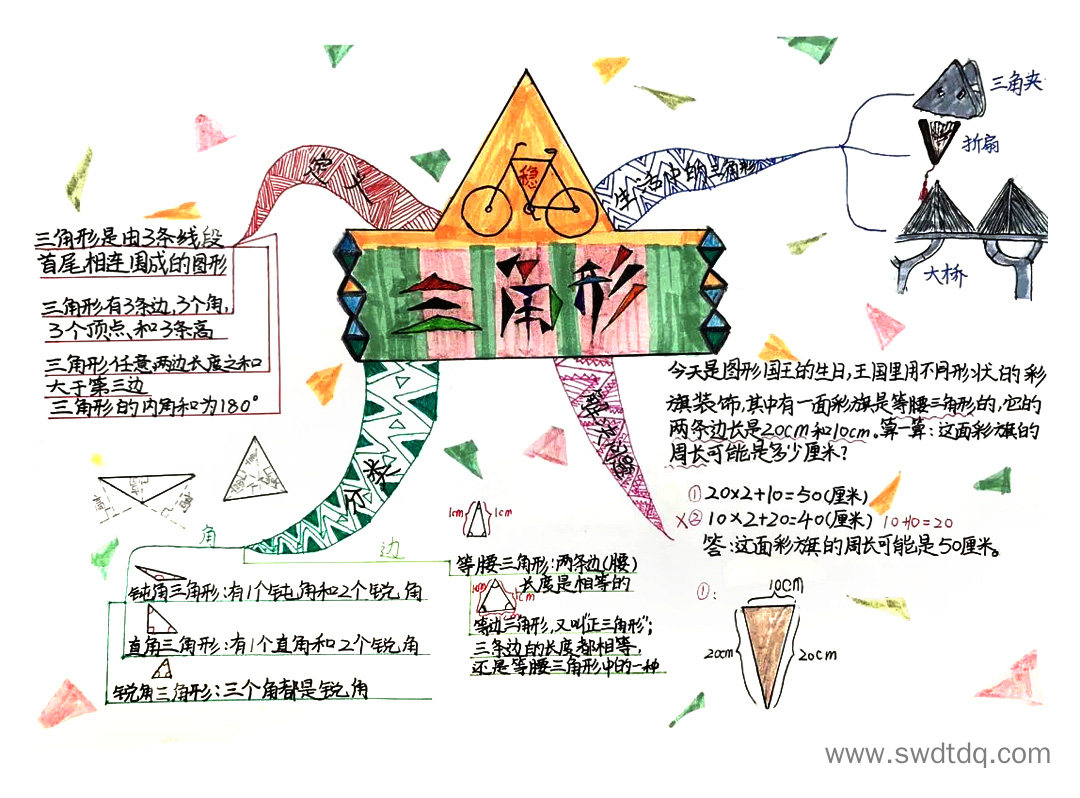 稳
三角形
定义
三角形是由3条线段
首尾相连围成的图形
三角形有3条边,3个角,
3个顶点、和3条高
三角形任意两边长度之和
大于第三边
三角形的内角和为180°
生活中的三角形
三角夹
折扇
大桥
分类
高
高
角
钝角三角形:有1个钝角和2个锐角
直角三角形:有1个直角和2个锐角
锐角三角形:三个角都是锐角
边
1cm
1cm
等腰三角形:两条边(腰)
长度是相等的
等边三角形,又叫"正三角形";
三条边的长度都相等,
还是等腰三角形中的一种
今天是图形国王的生日,王国里用不同形状的彩
旗装饰,其中有一面彩旗是等腰三角形的,它的
两条边长是20cm和10cm。算一算:这面彩旗的
周长可能是多少厘米?
①20×2+10=50(厘米)
×②10×2+20=40(厘米) 10+10=20
答:这面彩旗的周长可能是50厘米。
①:
10cm
20cm
20cm
www.swdtdq.com